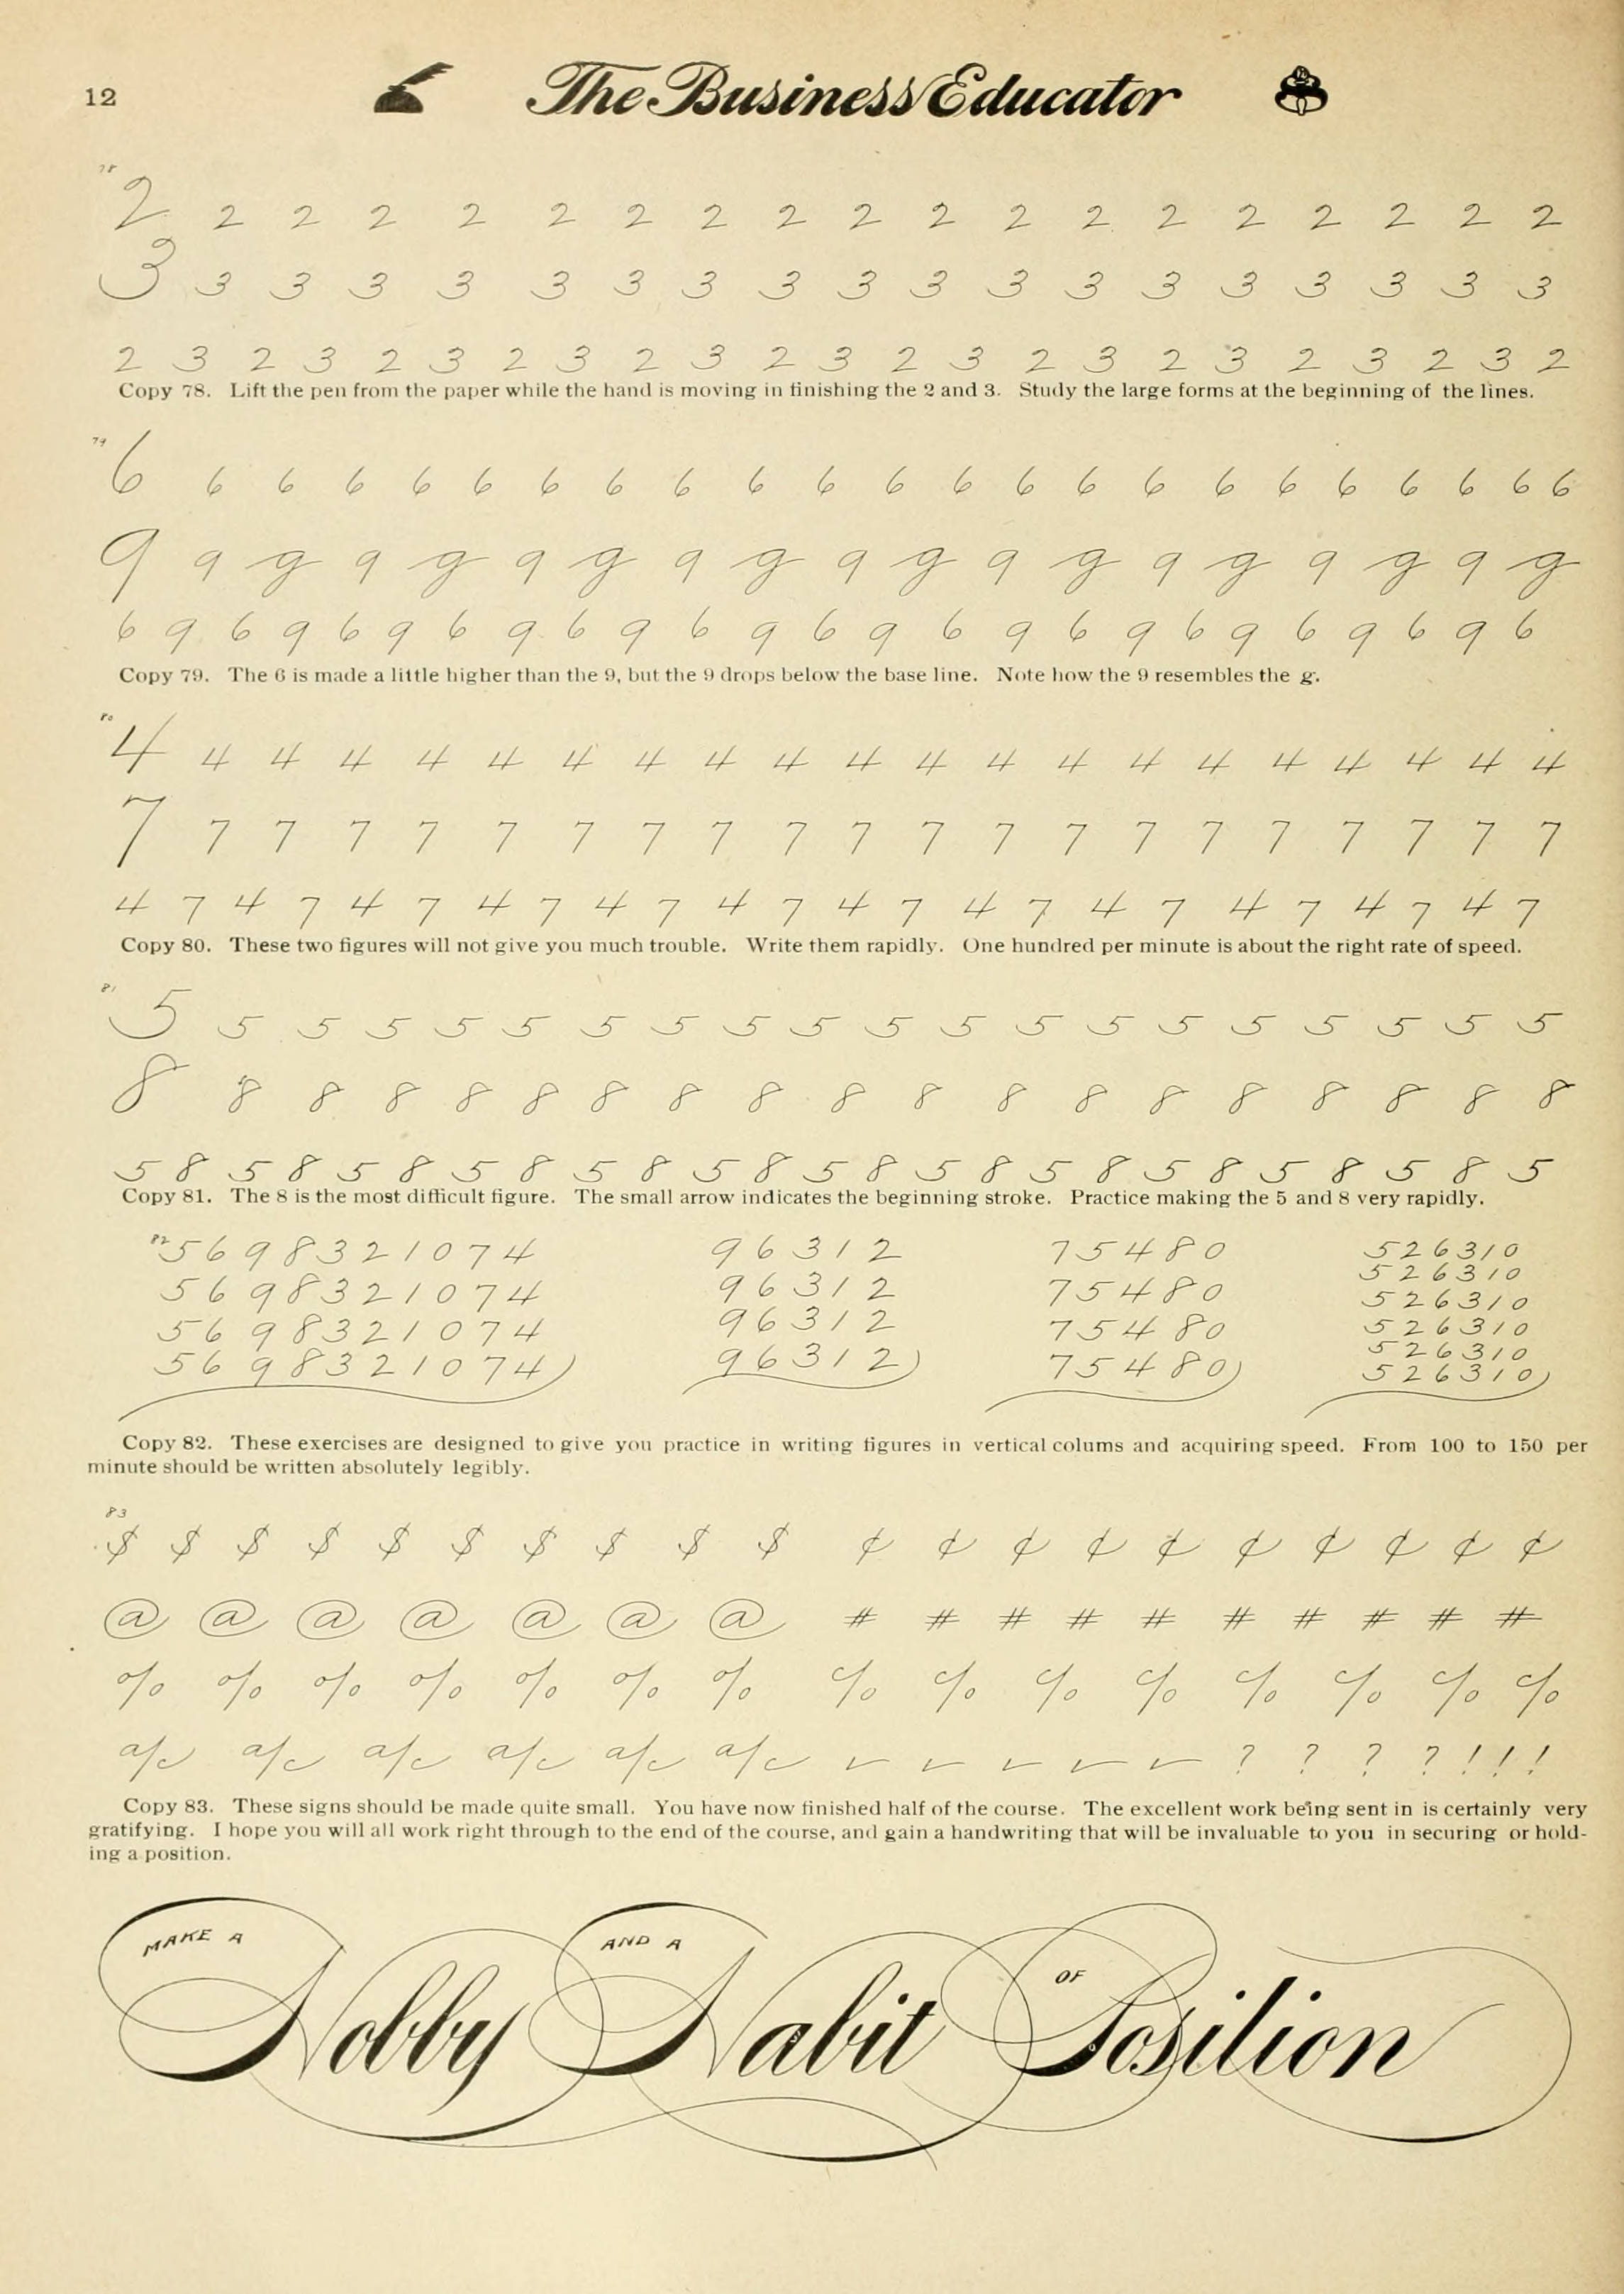 12 The Business Educator
78
2 2 2 2 2 2 2 2 2 2 2 2 2 2 2 2 2 2 2
3 3 3 3 3 3 3 3 3 3 3 3 3 3 3 3 3 3 3
2 3 2 3 2 3 2 3 2 3 2 3 2 3 2 3 2 3 2 3 2 3 2
Copy 78. Lift the pen from the paper while the hand is moving in finishing the 2 and 3. Study the large forms at the beginning of the lines.
79
6 6 6 6 6 6 6 6 6 6 6 6 6 6 6 6 6 6 6 6 6 6 6
9 9 g 9 g 9 g 9 g 9 g 9 g 9 g 9 g 9 g
6 9 6 9 6 9 6 9 6 9 6 9 6 9 6 9 6 9 6 9 6 9 6 9 6
Copy 79. The 6 is made a little higher than the 9, but the 9 drops below the base line. Note how the 9 resembles the g.
80
4 4 4 4 4 4 4 4 4 4 4 4 4 4 4 4 4 4 4 4 4
7 7 7 7 7 7 7 7 7 7 7 7 7 7 7 7 7 7 7 7 7
4 7 4 7 4 7 4 7 4 7 4 7 4 7 4 7 4 7 4 7 4 7 4 7
Copy 80. These two figures will not give you much trouble. Write them rapidly. One hundred per minute is about the right rate of speed.
81
5 5 5 5 5 5 5 5 5 5 5 5 5 5 5 5 5 5 5 5
8 8 8 8 8 8 8 8 8 8 8 8 8 8 8 8 8 8 8
5 8 5 8 5 8 5 8 5 8 5 8 5 8 5 8 5 8 5 8 5 8 5 8 5
Copy 81. The 8 is the most difficult figure. The small arrow indicates the beginning stroke. Practice making the 5 and 8 very rapidly.
82
5698321074
5698321074
5698321074
5698321074
96312
96312
96312
96312
75480
75480
75480
75480
526310
526310
526310
526310
526310
526310
Copy 82. These exercises are designed to give you practice in writing figures in vertical colums and acquiring speed. From 100 to 150 per
minute should be written absolutely legibly.
83
$ $ $ $ $ $ $ $ $ $ ¢ ¢ ¢ ¢ ¢ ¢ ¢ ¢ ¢ ¢
@ @ @ @ @ @ @ # # # # # # # # # #
% % % % % % % c/o c/o c/o c/o c/o c/o c/o c/o
a/c a/c a/c a/c a/c a/c ✓ ✓ ✓ ✓ ✓ ? ? ? ? ! ! !
Copy 83. These signs should be made quite small. You have now finished half of the course. The excellent work being sent in is certainly very
gratifying. I hope you will all work right through to the end of the course, and gain a handwriting that will be invaluable to you in securing or hold-
ing a position.
MAKE A Hobby AND A Habit OF Position